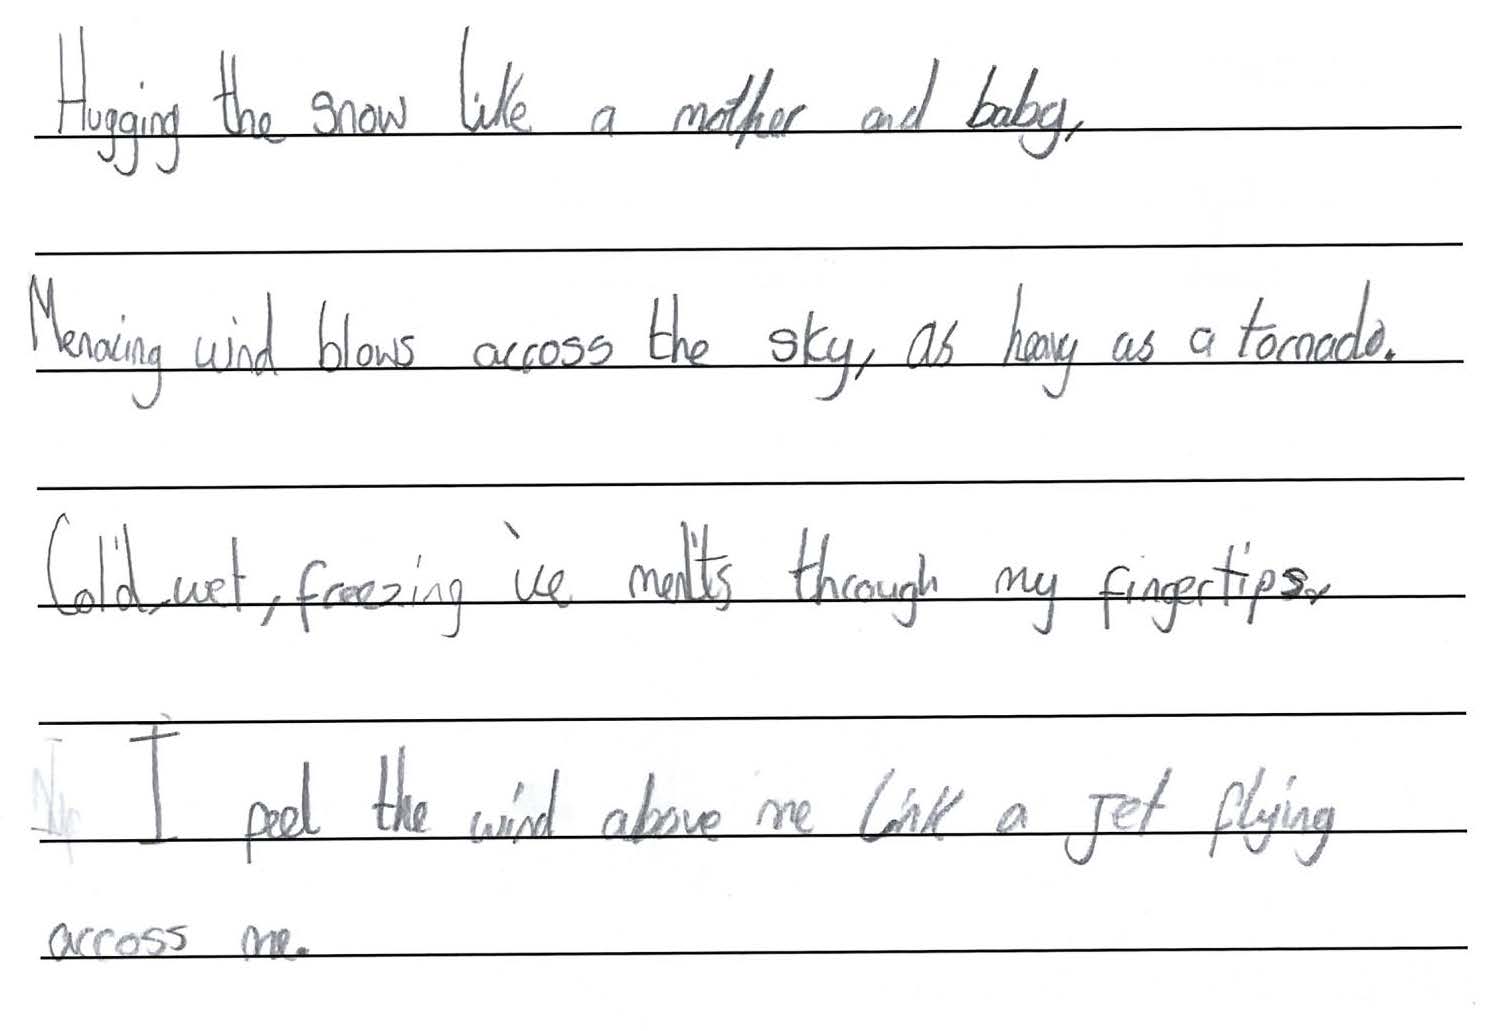 Hugging the snow like a mother and baby,
Menacing wind blows accross the sky, as heavy as a tornado.
Cold, wet, freezing ice melts through my fingertips.
I feel the wind above me like a Jet flying
accross me.